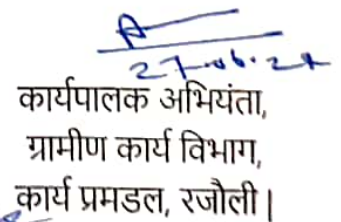 27-06-24
कार्यपालक अभियंता,
ग्रामीण कार्य विभाग,
कार्य प्रमडल, रजौली।